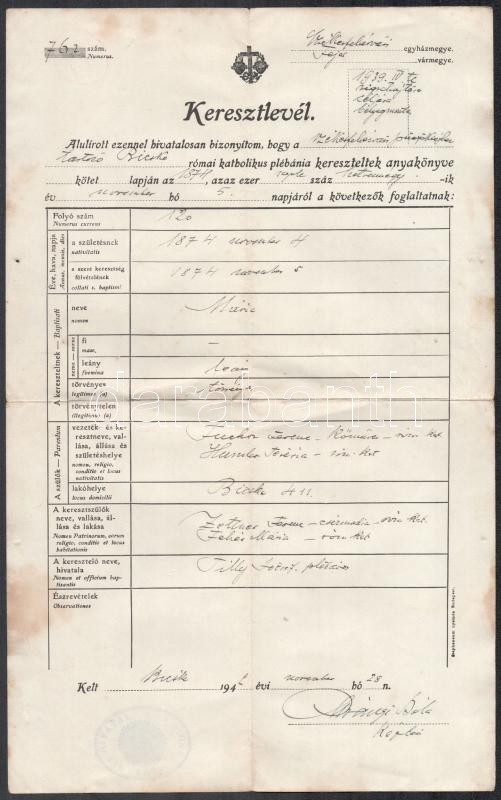 762 szám.
Numerus.
Székesfehérvári egyházmegye.
Fejér vármegye.
1939. IV tc
végrehajtása
céljára
bélyegmentes
Keresztlevél.
Alulírott ezennel hivatalosan bizonyítom, hogy a székesfehérvári püspökséghez
tartozó Bicske római katholikus plébánia kereszteltek anyakönyve
kötet lapján az 1874, azaz ezer nyolc száz hetvennegy -ik
év november hó 5. napjáról a következők foglaltatnak:
Folyó szám
Numerus currens
120
Éve, hava, napja
Annus, mensis, dies
a születésnek
nativitatis
1874 november 4
a szent keresztség
fölvételének
collati s. baptismi
1874 november 5
A kereszteltnek — Baptisati
neve
nomen
Mária
neme — sexus
fi
mas,
–
leány
foemina
leány
törvényes
legitimus (a)
törvényes
törvénytelen
illegitimus (a)
A szülők — Parentum
vezeték- és ke-
resztneve, val-
lása, állása és
születéshelye
nomen, religio,
conditio et locus
nativitatis
Ferenc – Kőműves – róm kat
Terézia – róm. kat
lakóhelye
locus domicilii
Bicske 411.
A keresztszülők
neve, vallása, ál-
lása és lakása
Nomen Patrinorum, eorum
religio, conditio et locus
habitationis
Ferenc – csizmadia – róm kat.
Fehér Mária – róm. kat
A keresztelő neve,
hivatala
Nomen et officium bap-
tisantis
Tilly József plébános
Észrevételek
Observationes
Stephaneum nyomda Budapest.
Kelt Bicske 194 évi november hó 28 n.
Béla
káplán
darabanth